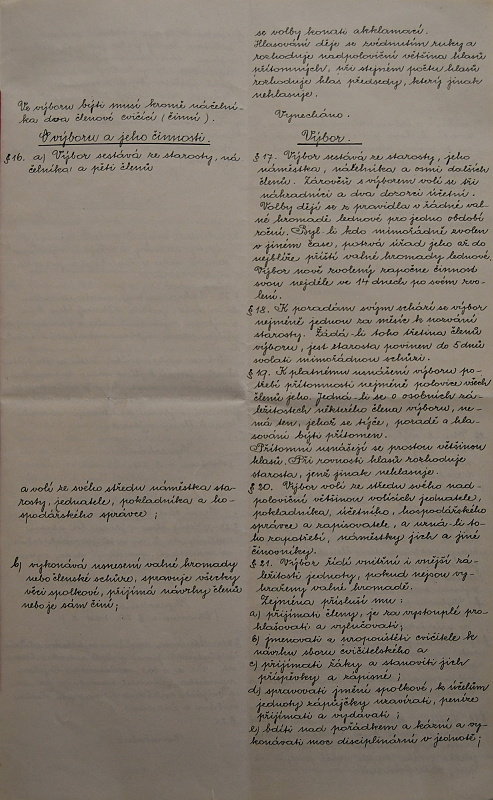 Ve výboru býti musí kromě náčelní-
ka dva členové cvičící (činní).
O výboru a jeho činnosti.
§16. a) Výbor sestává ze starosty, ná
čelníka a pěti členů
a volí ze svého středu náměstka sta-
rosty, jednatele, pokladníka a ho-
spodářského správce ;
b) vykonává usnesení valné hromady
nebo členské schůze, spravuje všecky
věci spolkové, přijímá návrhy členů
nebo je sám činí;
se volby konati akklamací.
Hlasování děje se zvednutím ruky a
rozhoduje nadpoloviční většina hlasů
přítomných, při stejném počtu hlasů
rozhoduje hlas předsedy, který jinak
nehlasuje.
Vynecháno.
Výbor.
§ 17. Výbor sestává ze starosty, jeho
náměstka, náčelníka a osmi dalších
členů. Zároveň s výborem volí se tři
náhradníci a dva dozorci účetní.
Volby dějí se z pravidla v řádné val-
né hromadě lednové pro jedno období
roční. Byl-li kdo mimořádně zvolen
v jiném čase, potrvá úřad jeho až do
nejblíže příští valné hromady lednové.
Výbor nově zvolený započne činnost
svou nejdéle ve 14 dnech po svém zvo-
lení.
§ 18. K poradám svým schází se výbor
nejméně jednou za měsíc k pozvání
starosty. Žádá-li toho třetina členů
výboru, jest starosta povinen do 5 dnů
svolati mimořádnou schůzi.
§ 19. K platnému usnášení výboru po-
třebí přítomnosti nejméně polovice všech
členů jeho. Jedná-li se o osobních zá-
ležitostech některého člena výboru, ne-
má ten, jehož se týče, poradě a hla-
sování býti přítomen.
Přítomní usnášejí se prostou většinou
hlasů. Při rovnosti hlasů rozhoduje
starosta, jenž jinak nehlasuje.
§ 20. Výbor volí ze středu svého nad-
poloviční většinou volících jednatele,
pokladníka, účetního, hospodářského
správce a zapisovatele, a uzná-li to-
ho zapotřebí, náměstky jich a jiné
činovníky.
§ 21. Výbor řídí vnitřní i vnější zá-
ležitosti jednoty, pokud nejsou vy-
hraženy valné hromadě.
Zejména přísluší mu :
a) přijímati členy, je za vystouplé pro-
hlašovati a vylučovati;
b) jmenovati a propouštěti cvičitele k
návrhu sboru cvičitelského a
c) přijímati žáky a stanoviti jich
příspěvky a zápisné ;
d) spravovati jmění spolkové, k účelům
jednoty zápůjčky uzavírati, peníze
přijímati a vydávati ;
e) bdíti nad pořádkem a kázní a vy-
konávati moc disciplinární v jednotě;